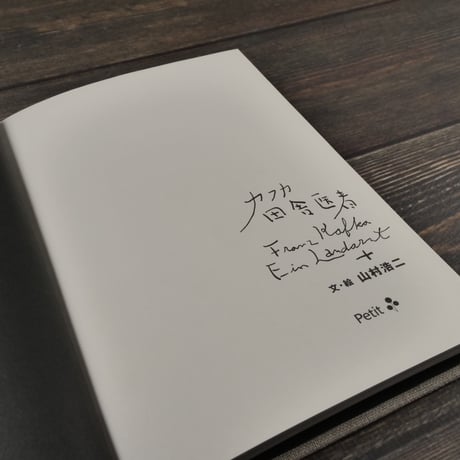 カフカ
田舎医者
Franz Kafka
Ein Landarzt
+
文・絵 山村浩二
Petit